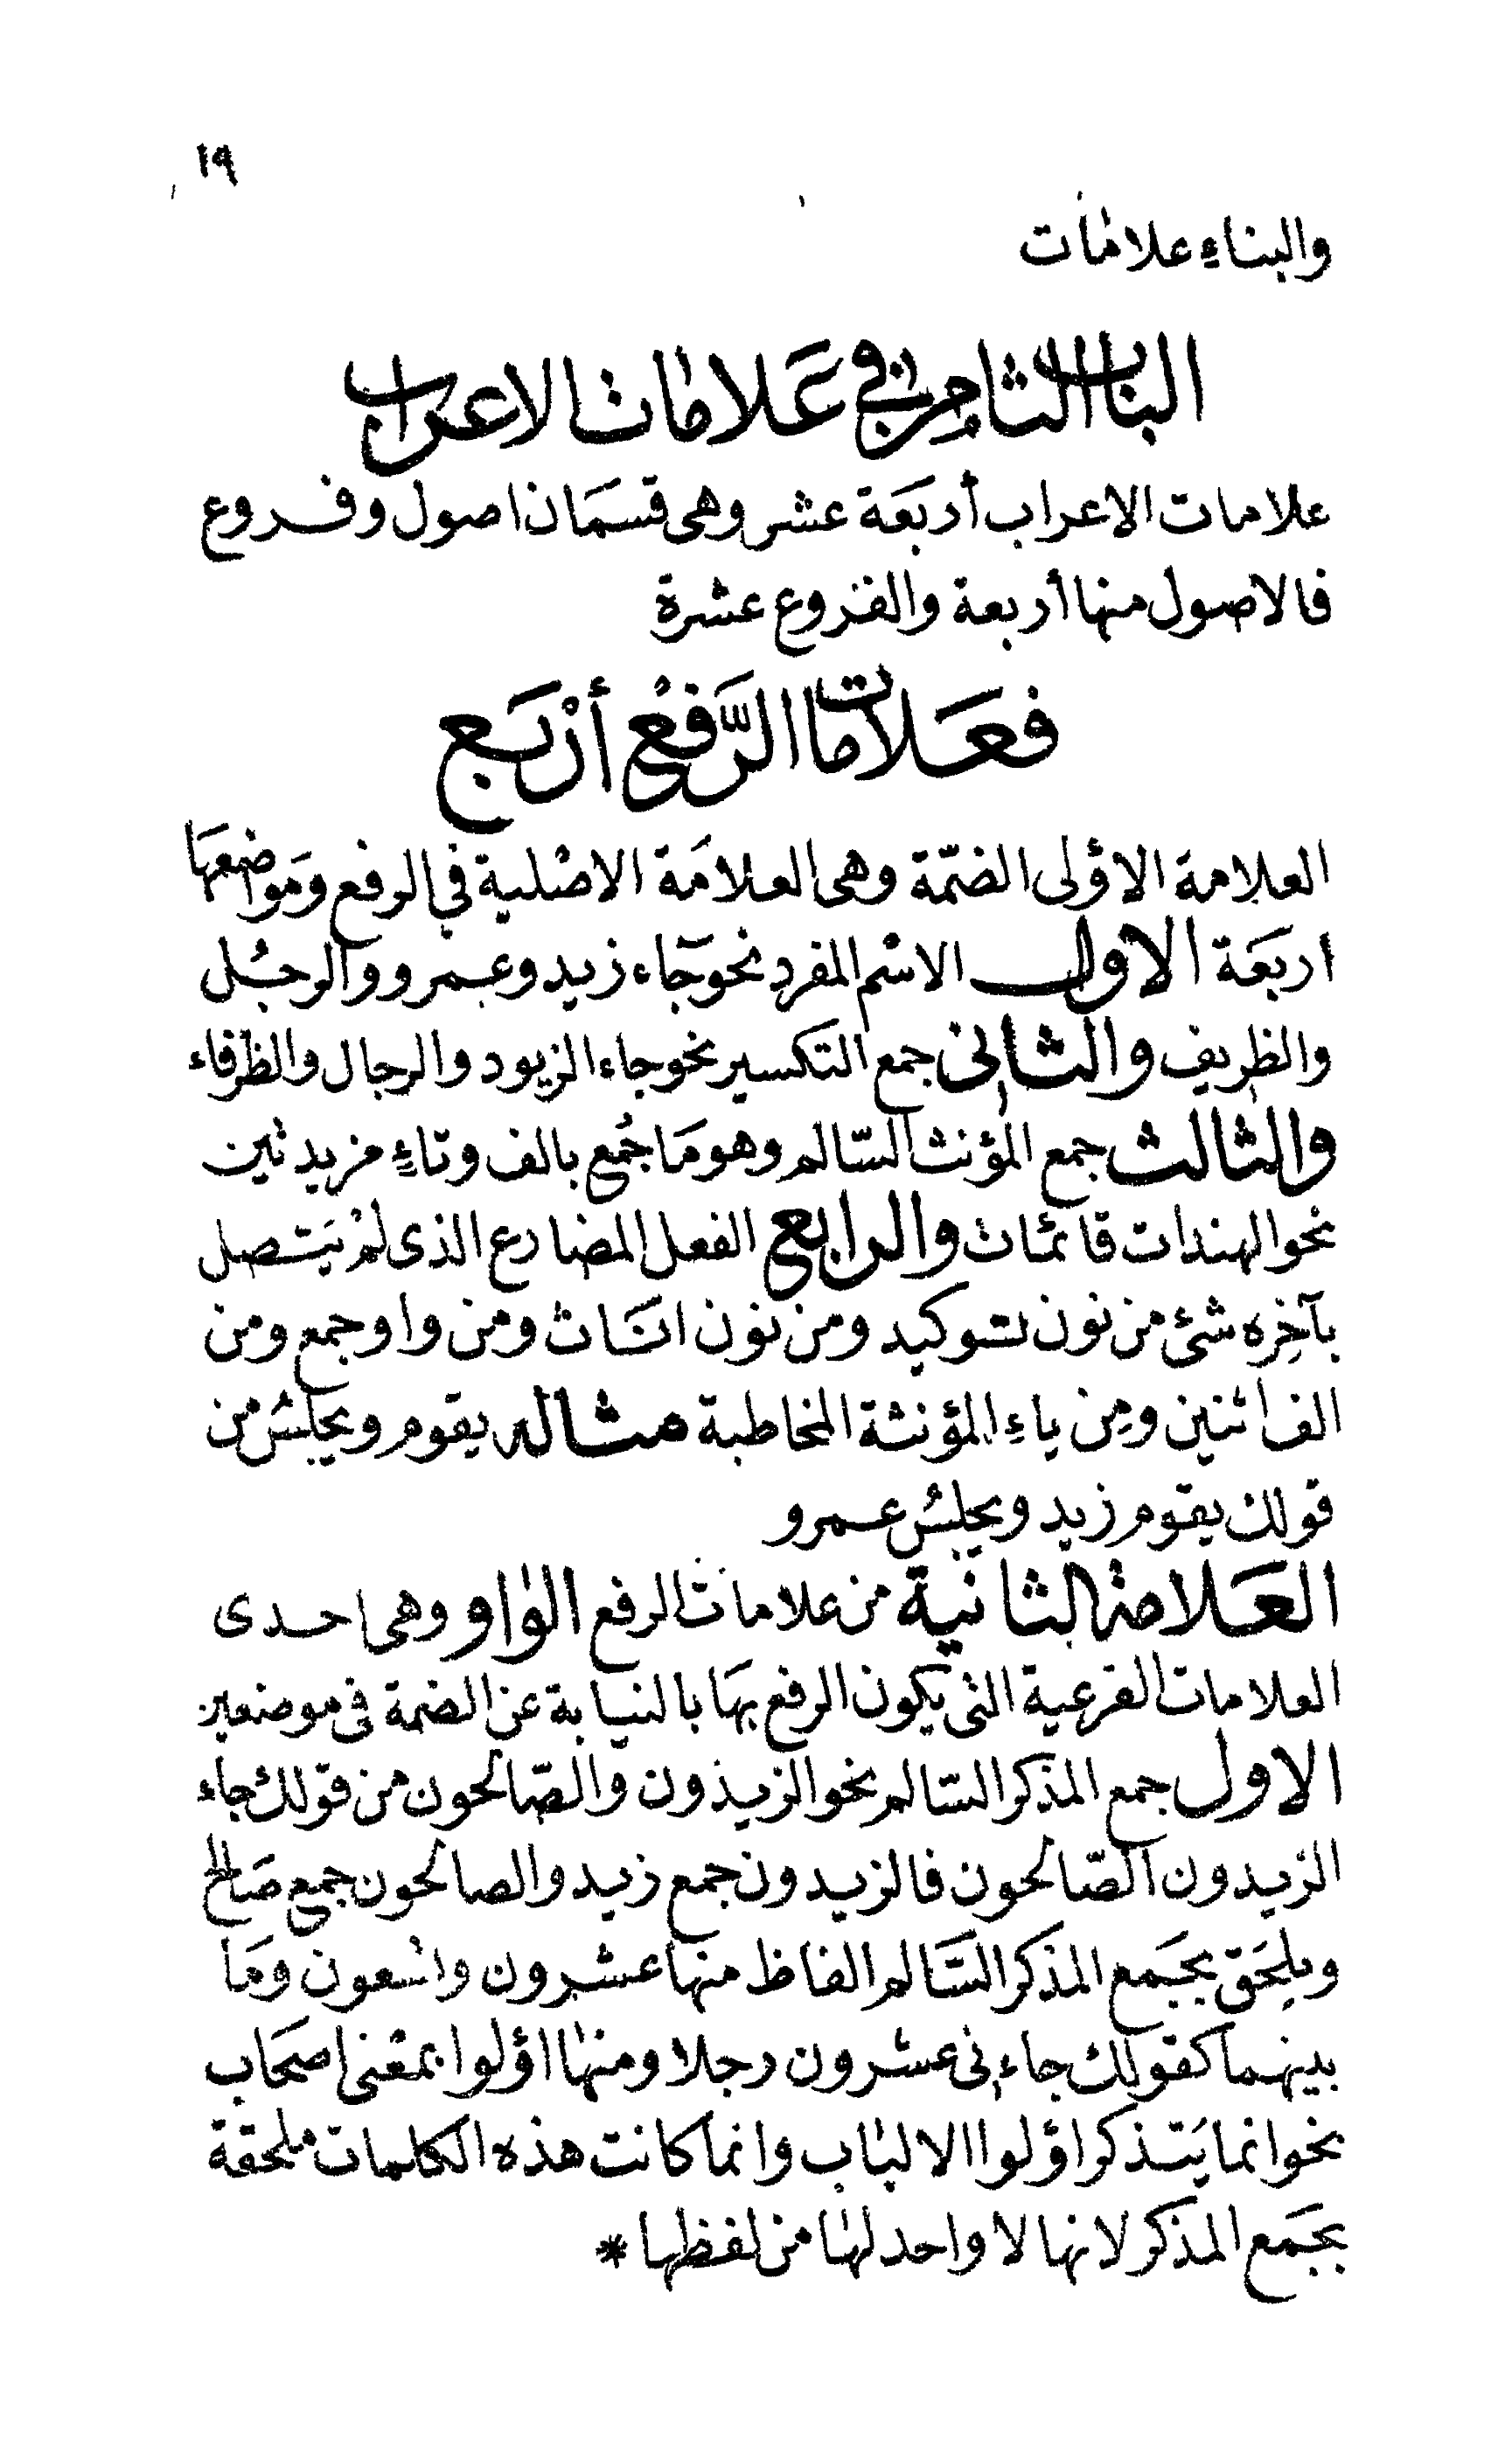 ١٩
والبناءِ علامات
الباب الثامن في عَلامات الاعراب
علامات الاعراب أربَعَة عشر وهى قسمَان اصول وفروع
فالاصول منها أربعة والفروع عشرة
فعَلامات الرَّفعْ أرْبَع
العلامة الاؤلى الضمّة وهى العلامَة الاصْلية في الرفع ومَواضعهَا
اربَعَة الاول الاسْم المفرد نحو جَآء زيد وعمرو والرجُل
والظريف والثاني جمع التكسير نحو جاء الزيود والرجال والظرفاء
والثالث جمع المؤنث السّالم وهو مَا جُمع بالف وتاءٍ مزيدتين
نحو الهندات قائمات والرابع الفعل المضارع الذى لمْ يَتصل
بآخِره شئ من نون توكيد ومن نون انَاث ومن واو جمع ومن
الف اثنين ومِن ياءِ المؤنثة المخاطبة مثاله يقوم ويجلسُ من
قولك يقوم زيد ويجلسُ عمرو
العَلامة الثانية من علامات الرفع الواو وهى احدى
العلامات الفرعية التى يكون الرفع بهَا بالنيابة عن الضمة في موضعين
الاول جمع المذكر السّالم نحو الزيدون والصّالحون من قولك جاء
الزيدون الصّالحون فالزيدون جمع زيد والصالحون جمع صَالح
ويلحَق بجَمع المذكر السَّالم الفاظ منها عشرون وتسعون ومَا
بينهما كقولك جاءنى عشرون رجلا ومنها اؤلوا بمعْنى اصحَاب
نحو انما يَتذكر اؤلوا الالباب وانما كانت هذه الكلمات ملحقة
بجَمع المذكر لانها لا واحد لها من لفظها *